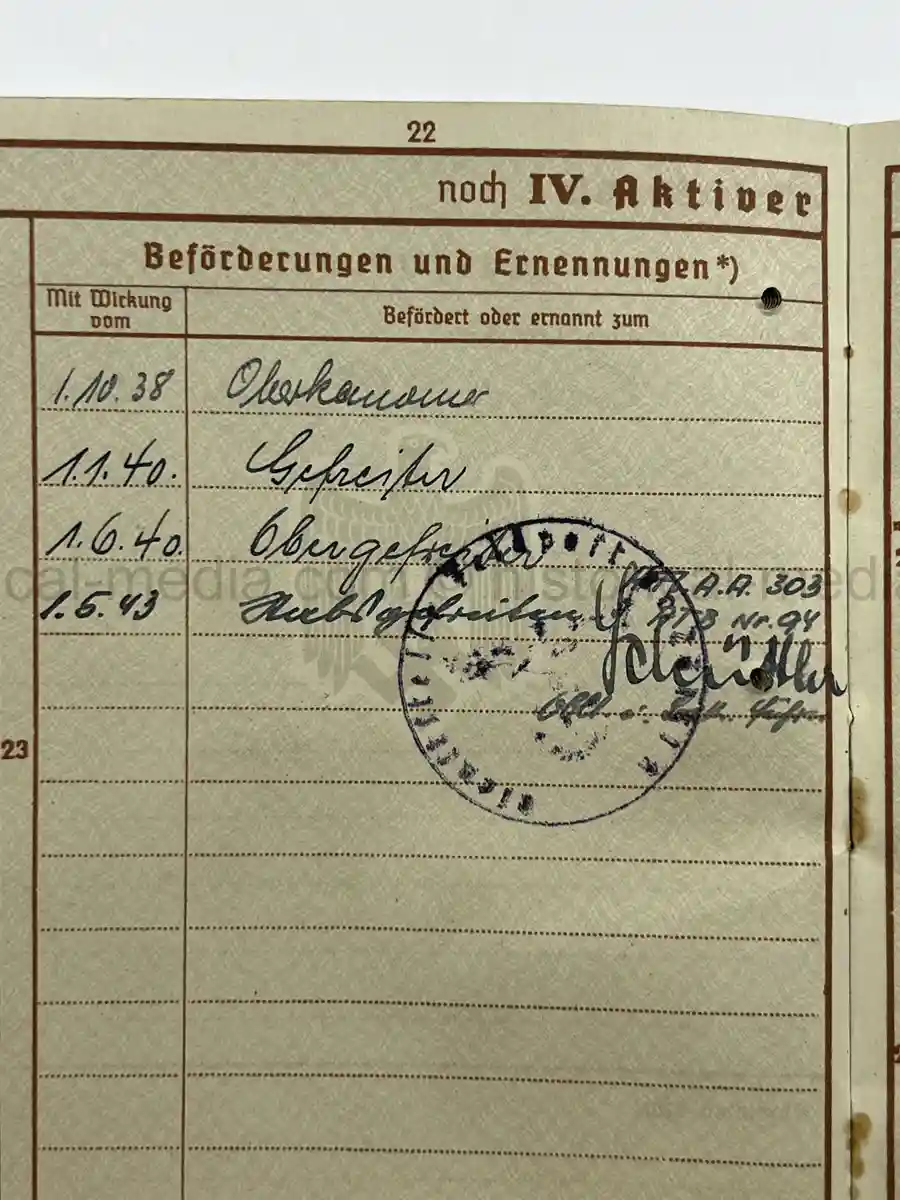 22
noch IV. Aktiver
Beförderungen und Ernennungen*)
Mit Wirkung vom
Befördert oder ernannt zum
1.10.38 Oberkanonier
1.1.40. Gefreiter
1.6.40. Obergefreiter
A.A. 303
1.5.43 Stabsgefreiten Nr. 94
Schüttler
23
cal-media.com